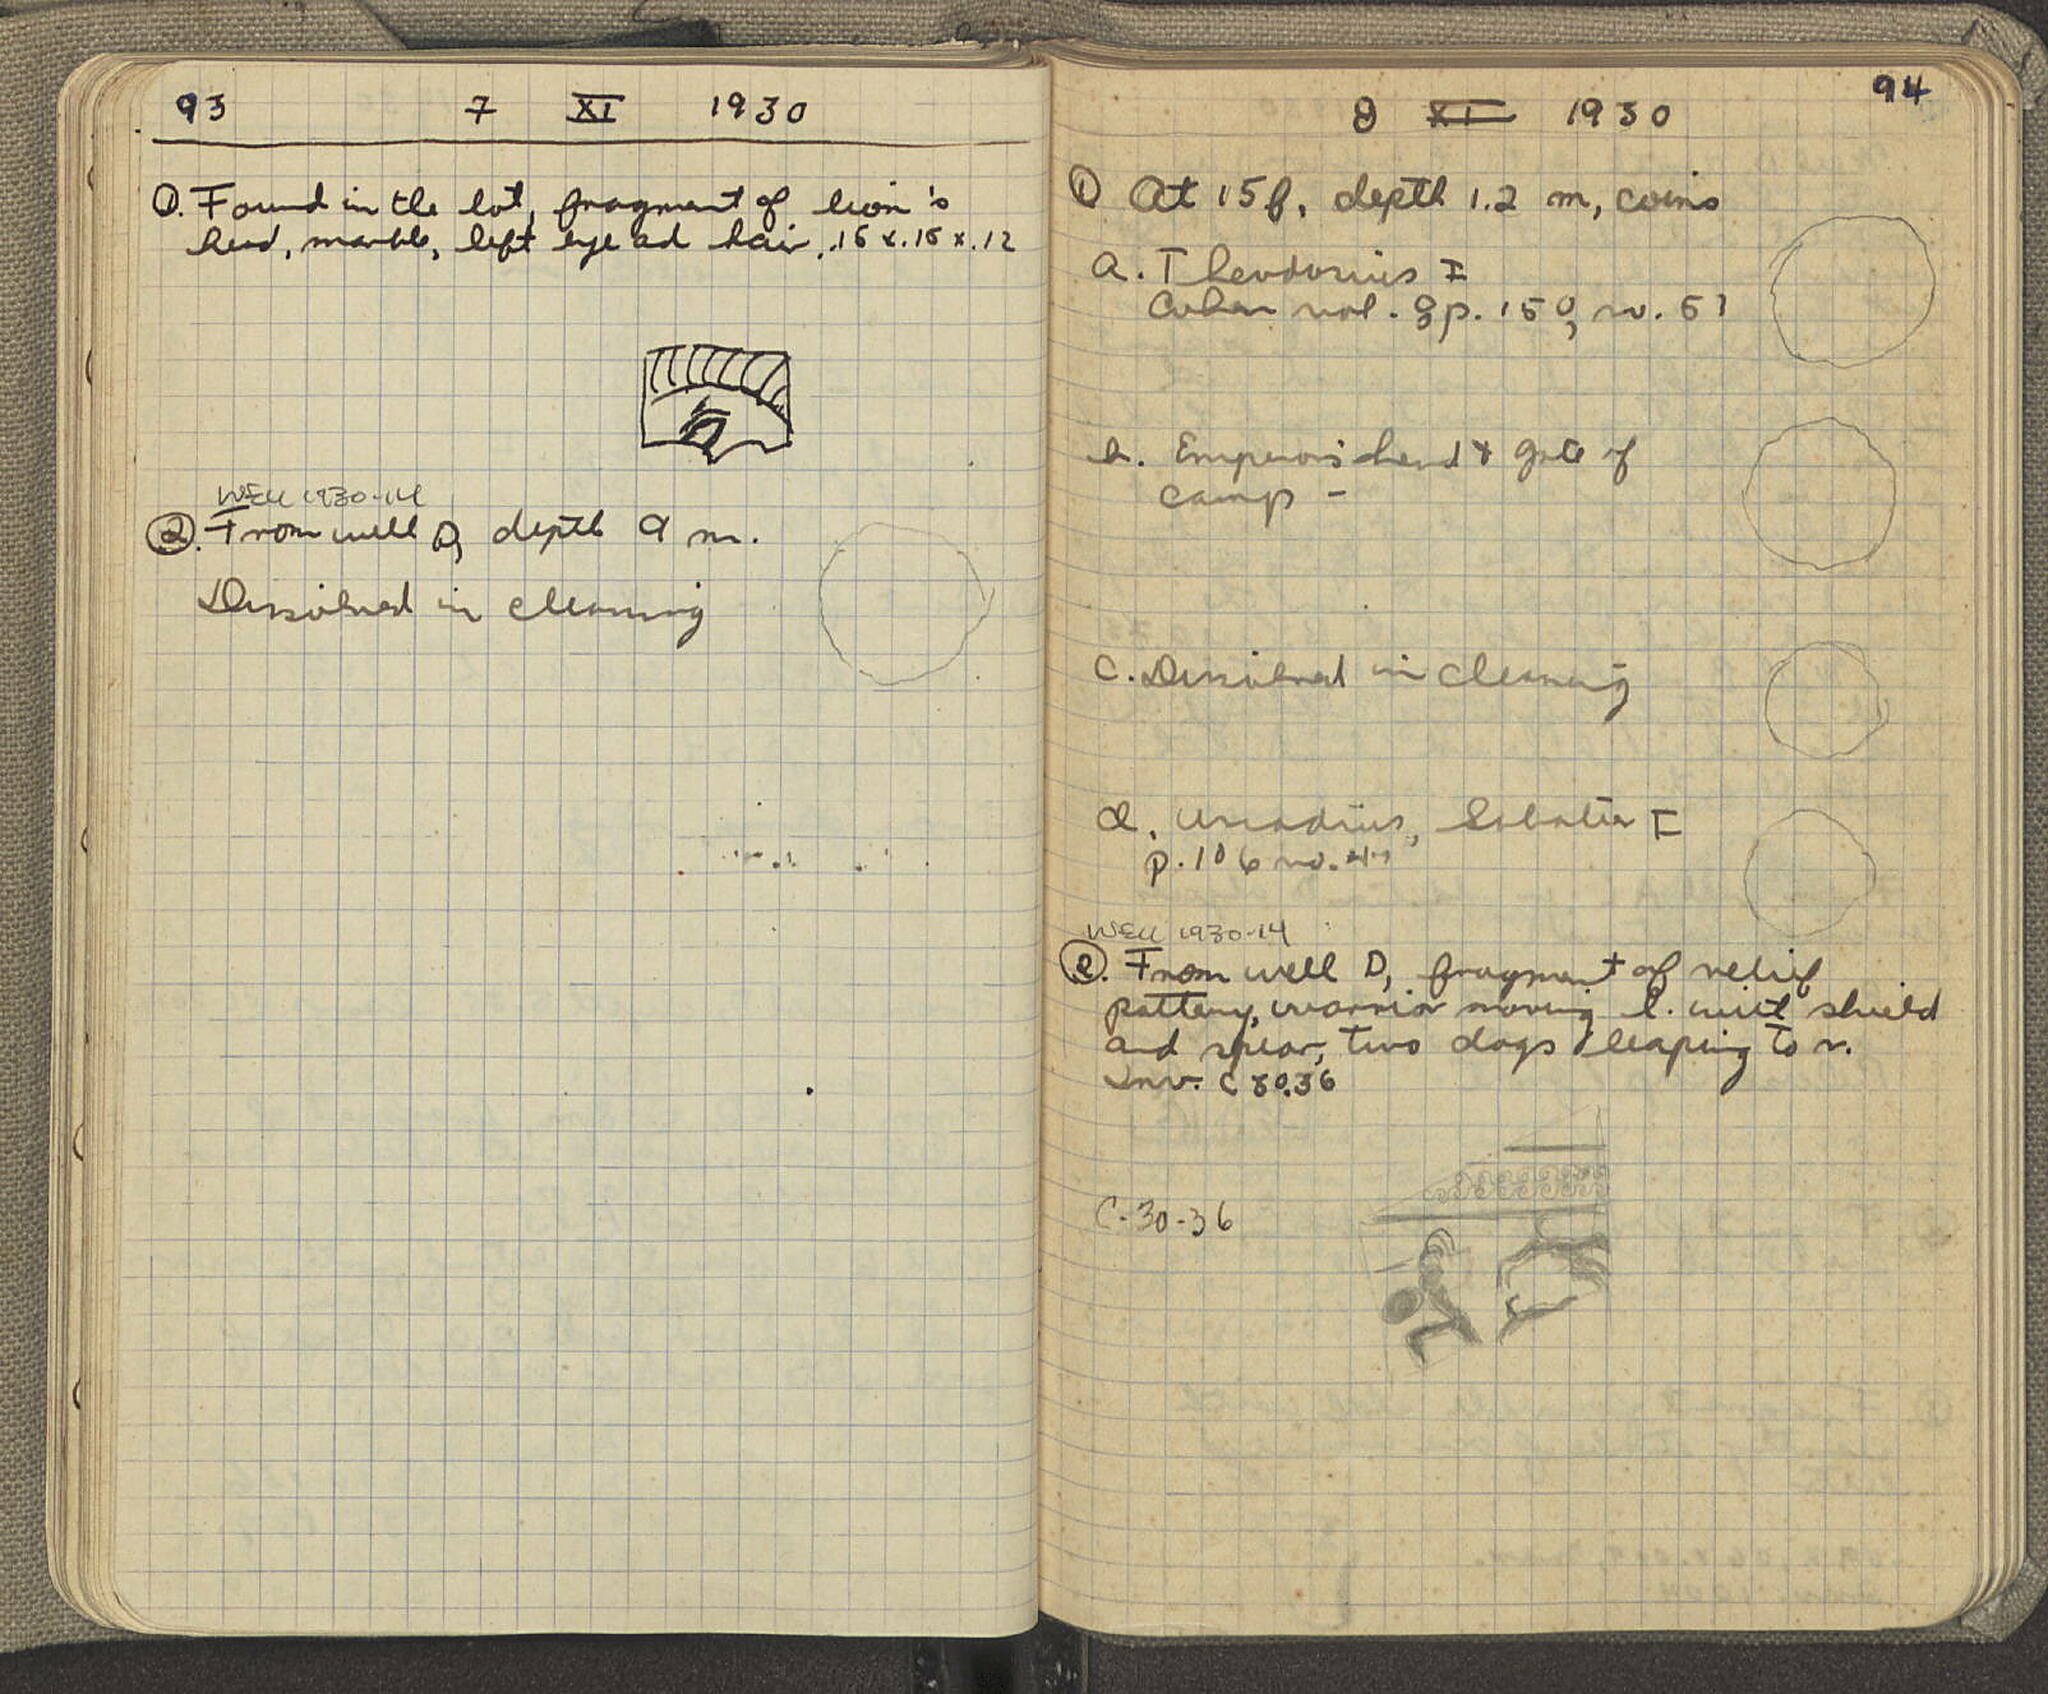 93 7 XI 1930
1. Found in the lot, fragment of lion's
head, marble, left eye ad hair, .15 x .15 x .12
WELL 1930-14
2. From well D, depth 9 m.
Dissolved in cleaning
94
8 XI 1930
1 At 15 f, depth 1.2 m, coins
a. Theodosius I
Cohen vol. 8 p. 150, no. 51
b. Emperor's head & gate of
camp -
c. Dissolved in cleaning
d. Arcadius, Sabatier I
p. 106 no.
WELL 1930-14
2. From well D, fragment of relief
pottery, warrior moving l. with shield
and spear, two dogs leaping to r.
Inv. C 30.36
C-30-36